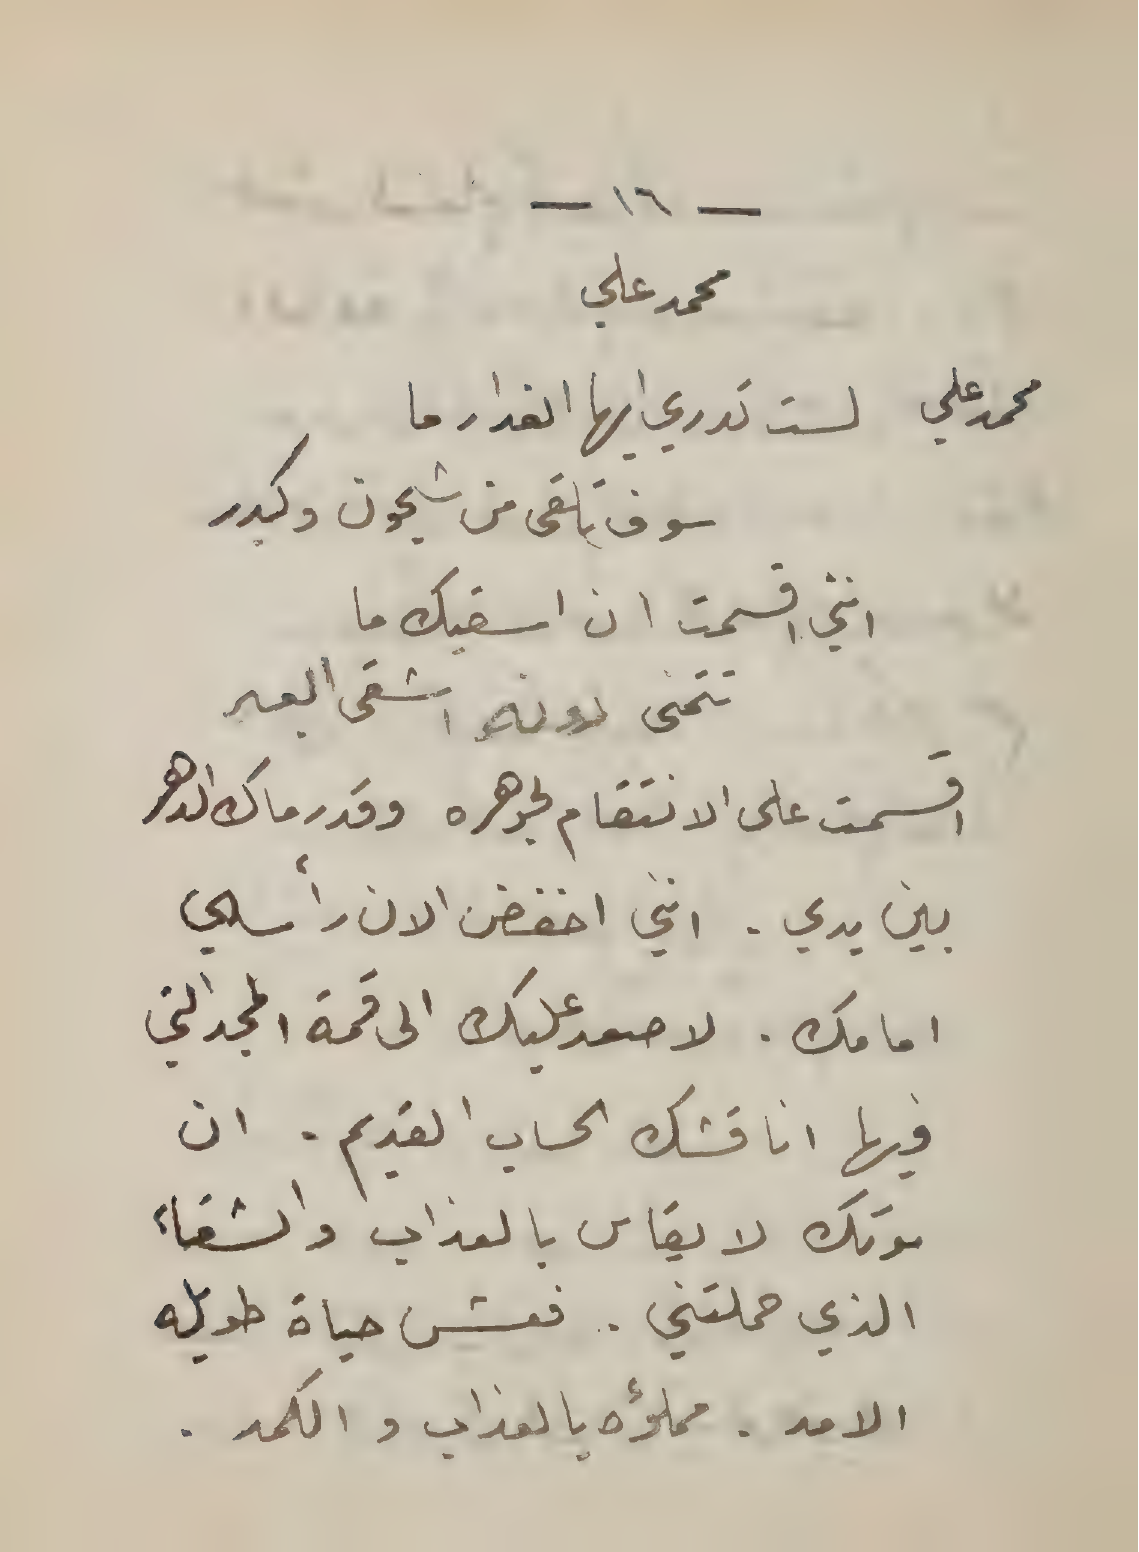 — ١٦ —
محمد علي
محمد علي لست تدري ايها الغدار ما
سوف تلقى من شجون وكدر
انني اقسمت ان اسقيك ما
تتمنى دونه اشقى العبر
اقسمت على الانتقام لجوهره وقد رماك الدهر
بين يدي . انني اخفض الان رأسي
امامك . لاصعد عليك الى قمة المجد التي
فيها اناقشك الحساب القديم . ان
موتك لا يقاس بالعذاب والشقاء
الذي حملتني . فعش حياة طويله
الامد . مملؤه بالعذاب و الكمد .